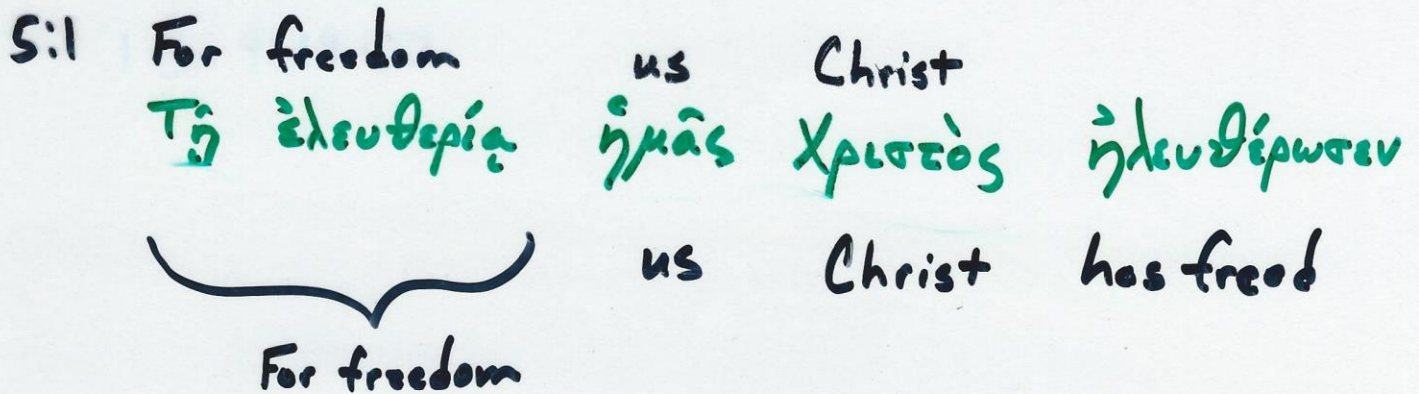 5:1 For freedom us Christ
Τῇ ἐλευθερίᾳ ἡμᾶς Χριστὸς ἠλευθέρωσεν
us Christ has freed
For freedom